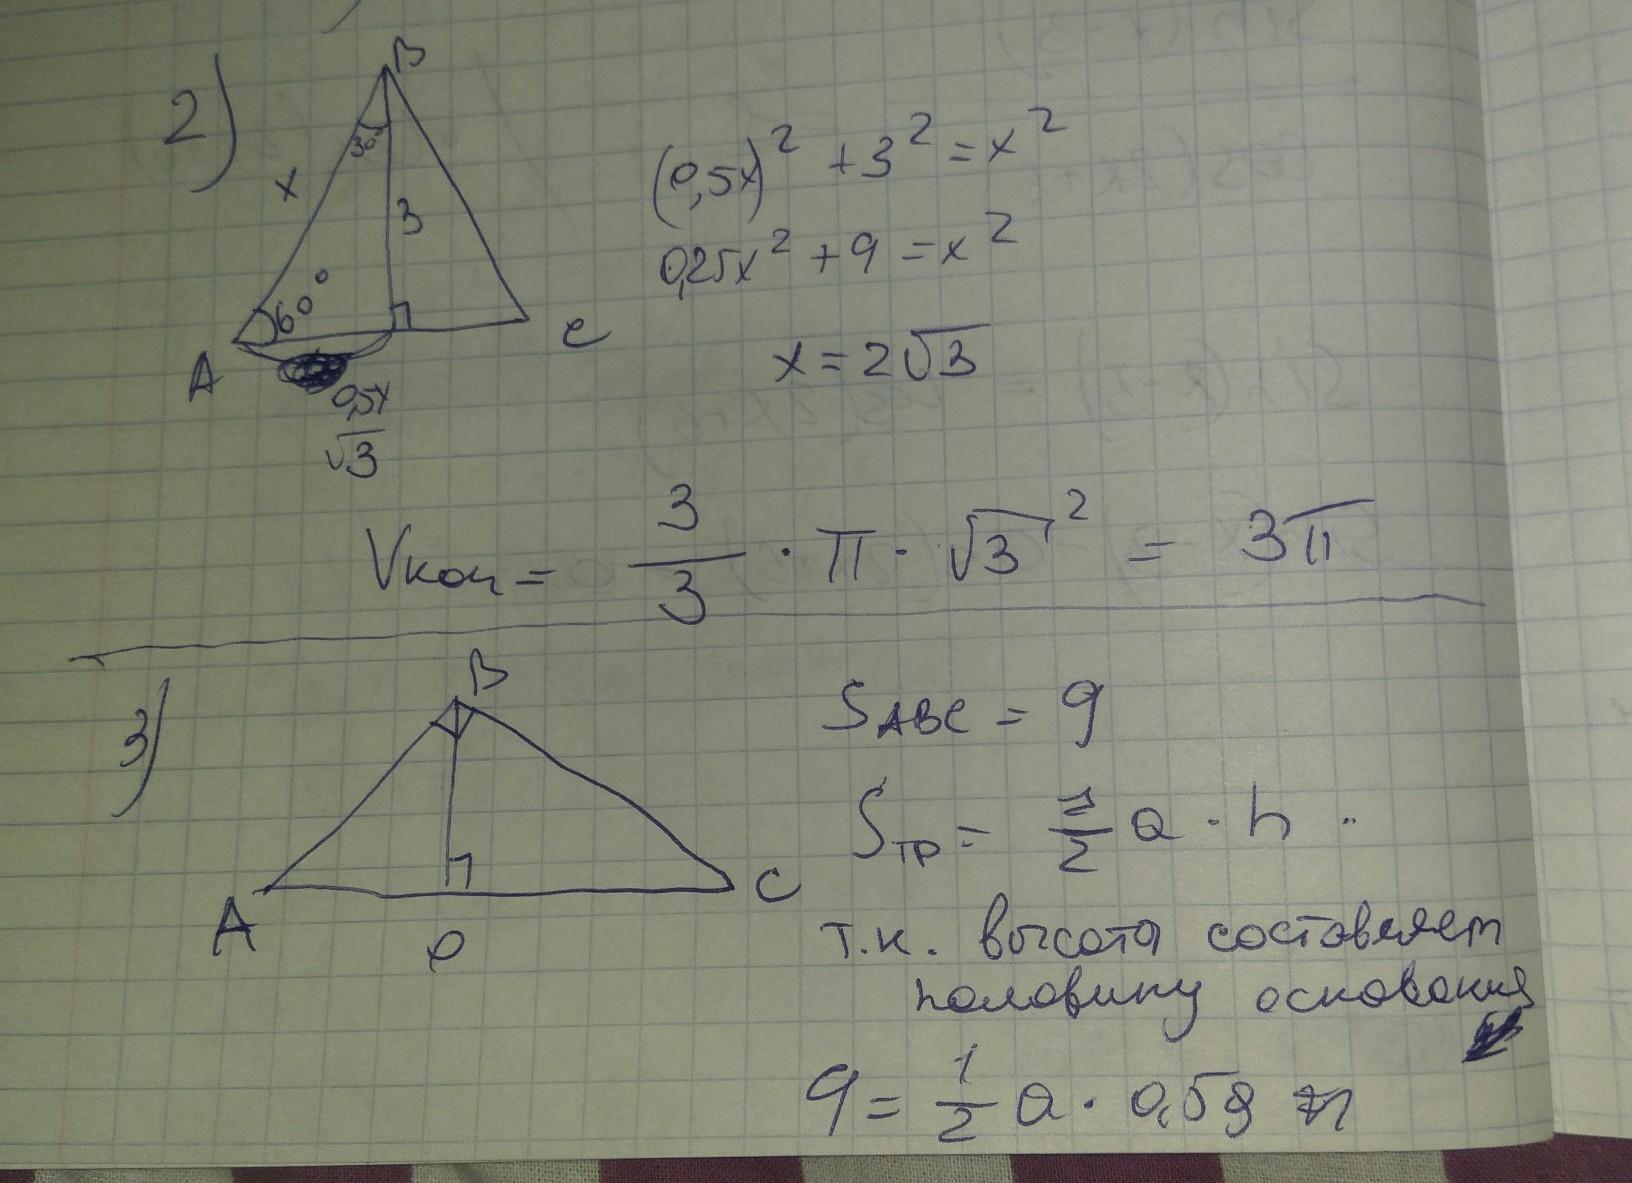 2)
B
30°
x
3
60°
A
C
0,5x
√3
(0,5x)² + 3² = x²
0,25x² + 9 = x²
x = 2√3
Vкон = 3/3 · π · √3² = 3π
3)
B
A
C
S ABC = 9
Sтр = 1/2 a · h
т.к. высота составляет
половину основания
9 = 1/2 a · 0,5